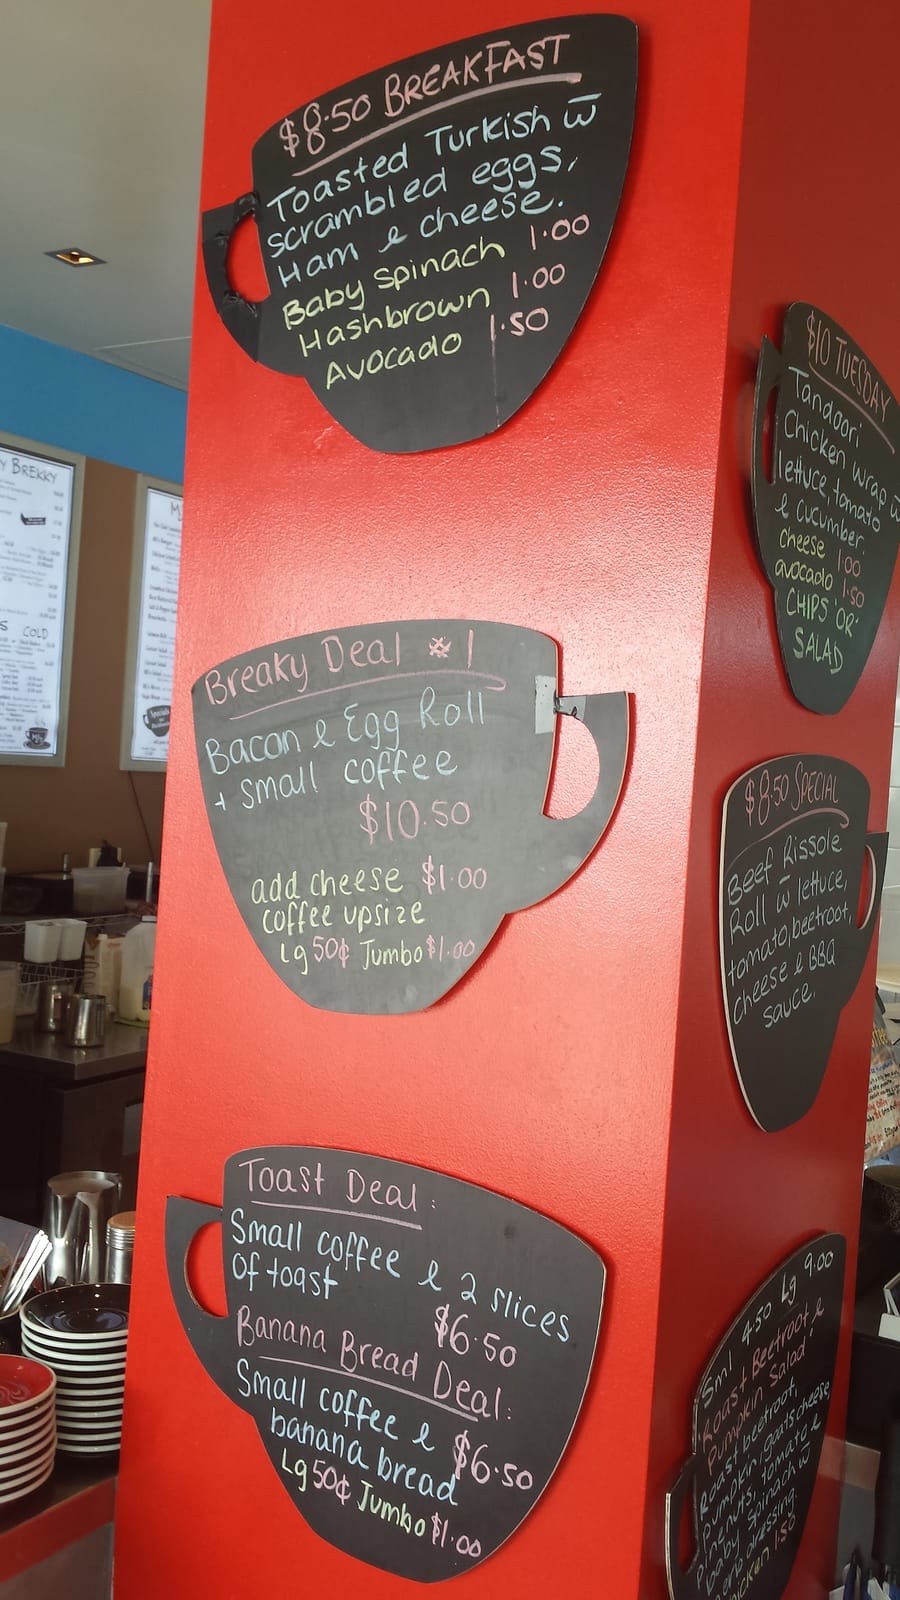 $8.50 BREAKFAST
Toasted Turkish w̅
scrambled eggs,
Ham & cheese.
Baby spinach 1.00
Hashbrown 1.00
Avocado 1.50
Breaky Deal #1
Bacon & Egg Roll
+ small coffee
$10.50
add cheese $1.00
coffee upsize
Lg 50¢ Jumbo $1.00
Toast Deal:
Small coffee & 2 slices
of toast
$6.50
Banana Bread Deal:
Small coffee &
banana bread $6.50
Lg 50¢ Jumbo $1.00
$10 TUESDAY
Tandoori
Chicken wrap w̅
lettuce, tomato
& cucumber.
cheese 1.00
avocado 1.50
CHIPS 'OR'
SALAD
$8.50 SPECIAL
Beef Rissole
Roll w̅ lettuce,
tomato, beetroot,
cheese & BBQ
sauce.
Sml 4.50 Lg 9.00
Roast Beetroot &
Pumpkin Salad
Roast beetroot,
pumpkin, goats cheese,
pinenuts, tomato &
baby spinach w̅
herb dressing.
chicken 1.50
BREKKY
COLD